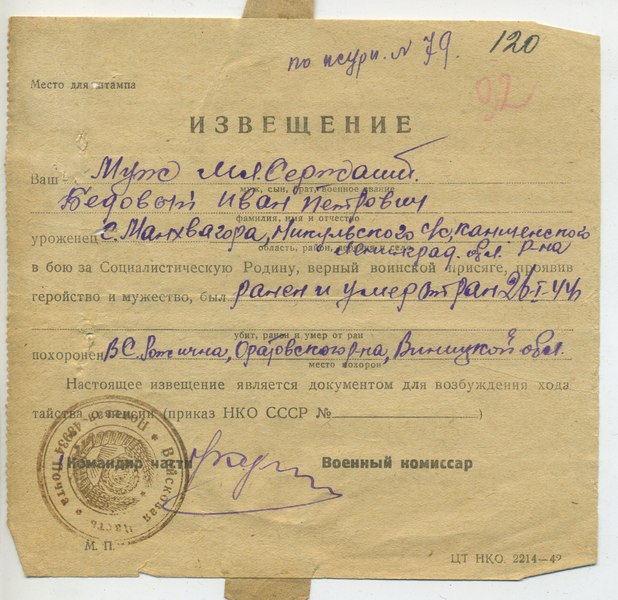 по журн. № 79.
120
92
Место для штампа
ИЗВЕЩЕНИЕ
Ваш - Муж мл. Сержант.
муж, сын, брат, военное звание
Бедовый Иван Петрович
фамилия, имя и отчество
уроженец с. Манхвагора, Никульского с/с, Каншенского
область, район, деревня и село
р-на
Ленинград. обл.
в бою за Социалистическую Родину, верный воинской присяге, проявив
геройство и мужество, был ранен и умер от ран 26-I-44
убит, ранен и умер от ран
похоронен В С. , Оратовского р-на, Виницкой обл.
место похорон
Настоящее извещение является документом для возбуждения хода
тайства о пенсии (приказ НКО СССР №)
Командир части
Военный комиссар
Войсковая Часть * Полевая Почта 48934
М. П.
ЦТ НКО. 2214—42